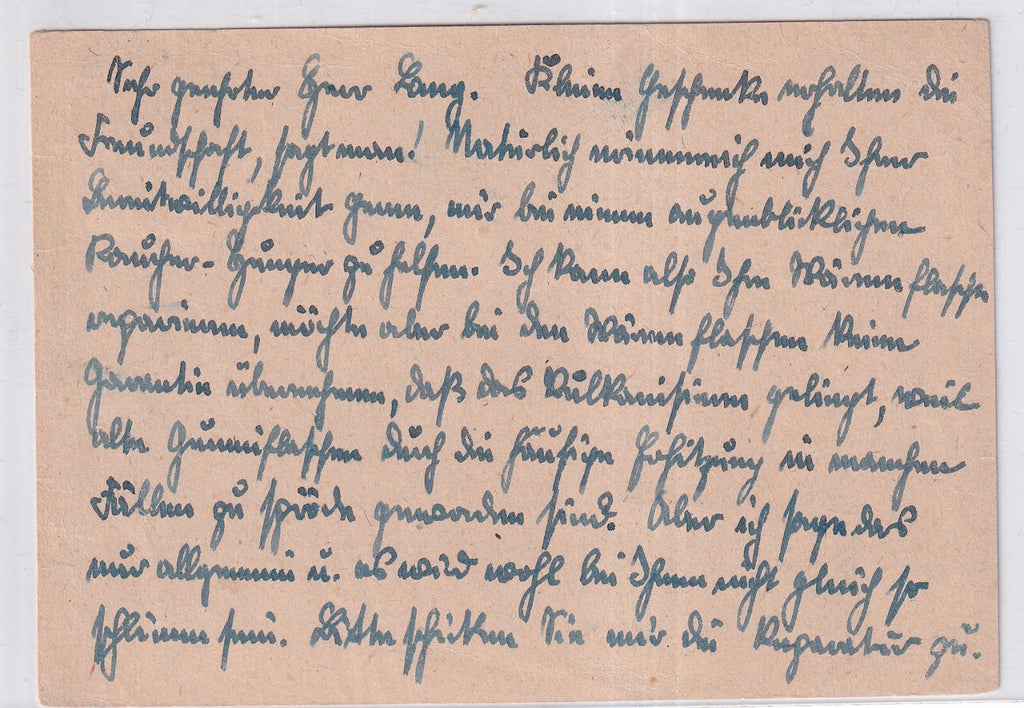 Sehr geehrter Herr Lang. Kleine Geschenke erhalten die
Freundschaft, sagt man! Natürlich erinnere ich mich Ihrer
Bereitwilligkeit gern, mir bei einem augenblicklichen
Raucher-Hunger zu helfen. Ich kann also Ihre Wärmeflasche
reparieren, möchte aber bei den Wärmeflaschen keine
Garantie übernehmen, daß das Vulkanisieren gelingt, weil
alte Gummiflaschen durch die häufige Erhitzung in manchen
Fällen zu spröde geworden sind. Aber ich sage das
nur allgemein u. es wird wohl bei Ihnen nicht gleich so
schlimm sein. Bitte schicken Sie mir die Reparatur zu.